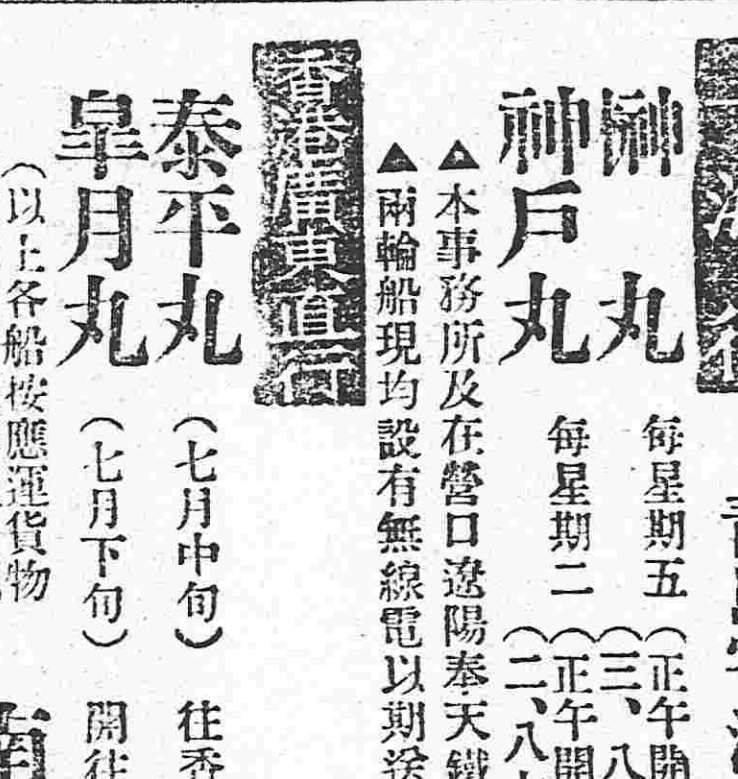 榊丸 每星期五(正午開
(三、八
神戶丸 每星期二(正午開
(二、八
▲本事務所及在營口遼陽奉天鐵
▲兩輪船現均設有無線電以期送
香港廣東直行
泰平丸(七月中旬)往香
皐月丸(七月下旬)開往
(以上各船按應運貨物